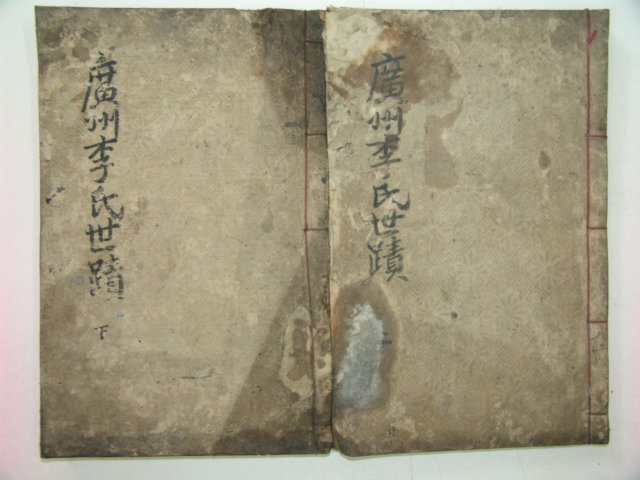 廣州李氏世蹟
廣州李氏世蹟
下